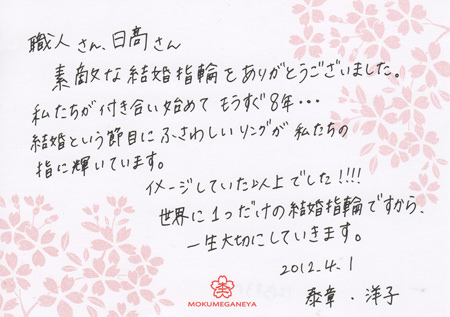 職人さん、日髙さん
素敵な結婚指輪をありがとうございました。
私たちが付き合い始めてもうすぐ8年・・・
結婚という節目にふさわしいリングが私たちの
指に輝いています。
イメージしていた以上でした!!!!
世界に1つだけの結婚指輪ですから、
一生大切にしていきます。
2012.4.1
泰章・洋子
MOKUMEGANEYA